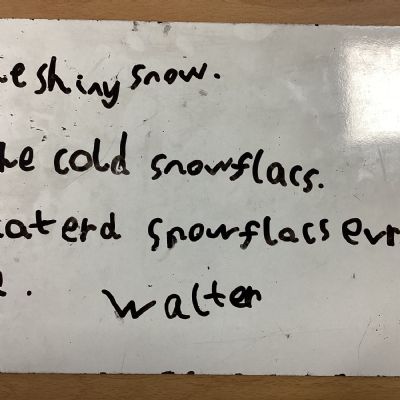 he shiny snow.
he cold snowflacs.
caterd snowflacs evr
.
Walter